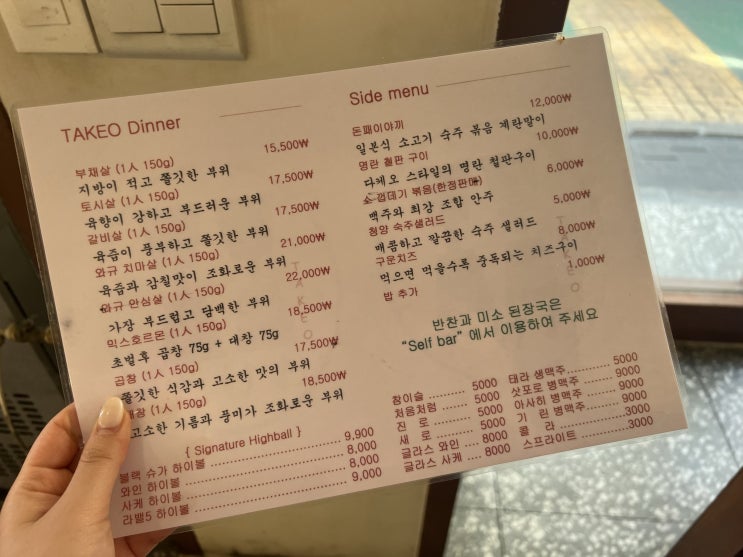 TAKEO Dinner
부채살 (1人 150g) 15,500₩
지방이 적고 쫄깃한 부위
토시살 (1人 150g) 17,500₩
육향이 강하고 부드러운 부위
갈비살 (1人 150g) 17,500₩
육즙이 풍부하고 쫄깃한 부위
와규 치마살 (1人 150g) 21,000₩
육즙과 감칠맛이 조화로운 부위
와규 안심살 (1人 150g) 22,000₩
가장 부드럽고 담백한 부위
믹스호르몬 (1人 150g) 18,500₩
초벌후 곱창 75g + 대창 75g
곱창 (1人 150g) 17,500₩
쫄깃한 식감과 고소한 맛의 부위
대창 (1人 150g) 18,500₩
고소한 기름과 풍미가 조화로운 부위
{ Signature Highball }
블랙 슈가 하이볼 9,900
와인 하이볼 8,000
사케 하이볼 8,000
라벨5 하이볼 9,000
Side menu
돈페이야끼 12,000₩
일본식 소고기 숙주 볶음 계란말이
명란 철판 구이 10,000₩
다케오 스타일의 명란 철판구이
소 껍데기 볶음(한정판매) 6,000₩
맥주와 최강 조합 안주
청양 숙주샐러드 5,000₩
매콤하고 깔끔한 숙주 샐러드
구운치즈 8,000₩
먹으면 먹을수록 중독되는 치즈구이
밥 추가 1,000₩
TAKEO
TAKEO
반찬과 미소 된장국은
“Self bar” 에서 이용하여 주세요
참이슬 5000
처음처럼 5000
진 로 5000
새 로 5000
글라스 와인 8000
글라스 사케 8000
테라 생맥주 5000
삿포로 병맥주 9000
아사히 병맥주 9000
기 린 병맥주 9000
콜 라 3000
스프라이트 3000